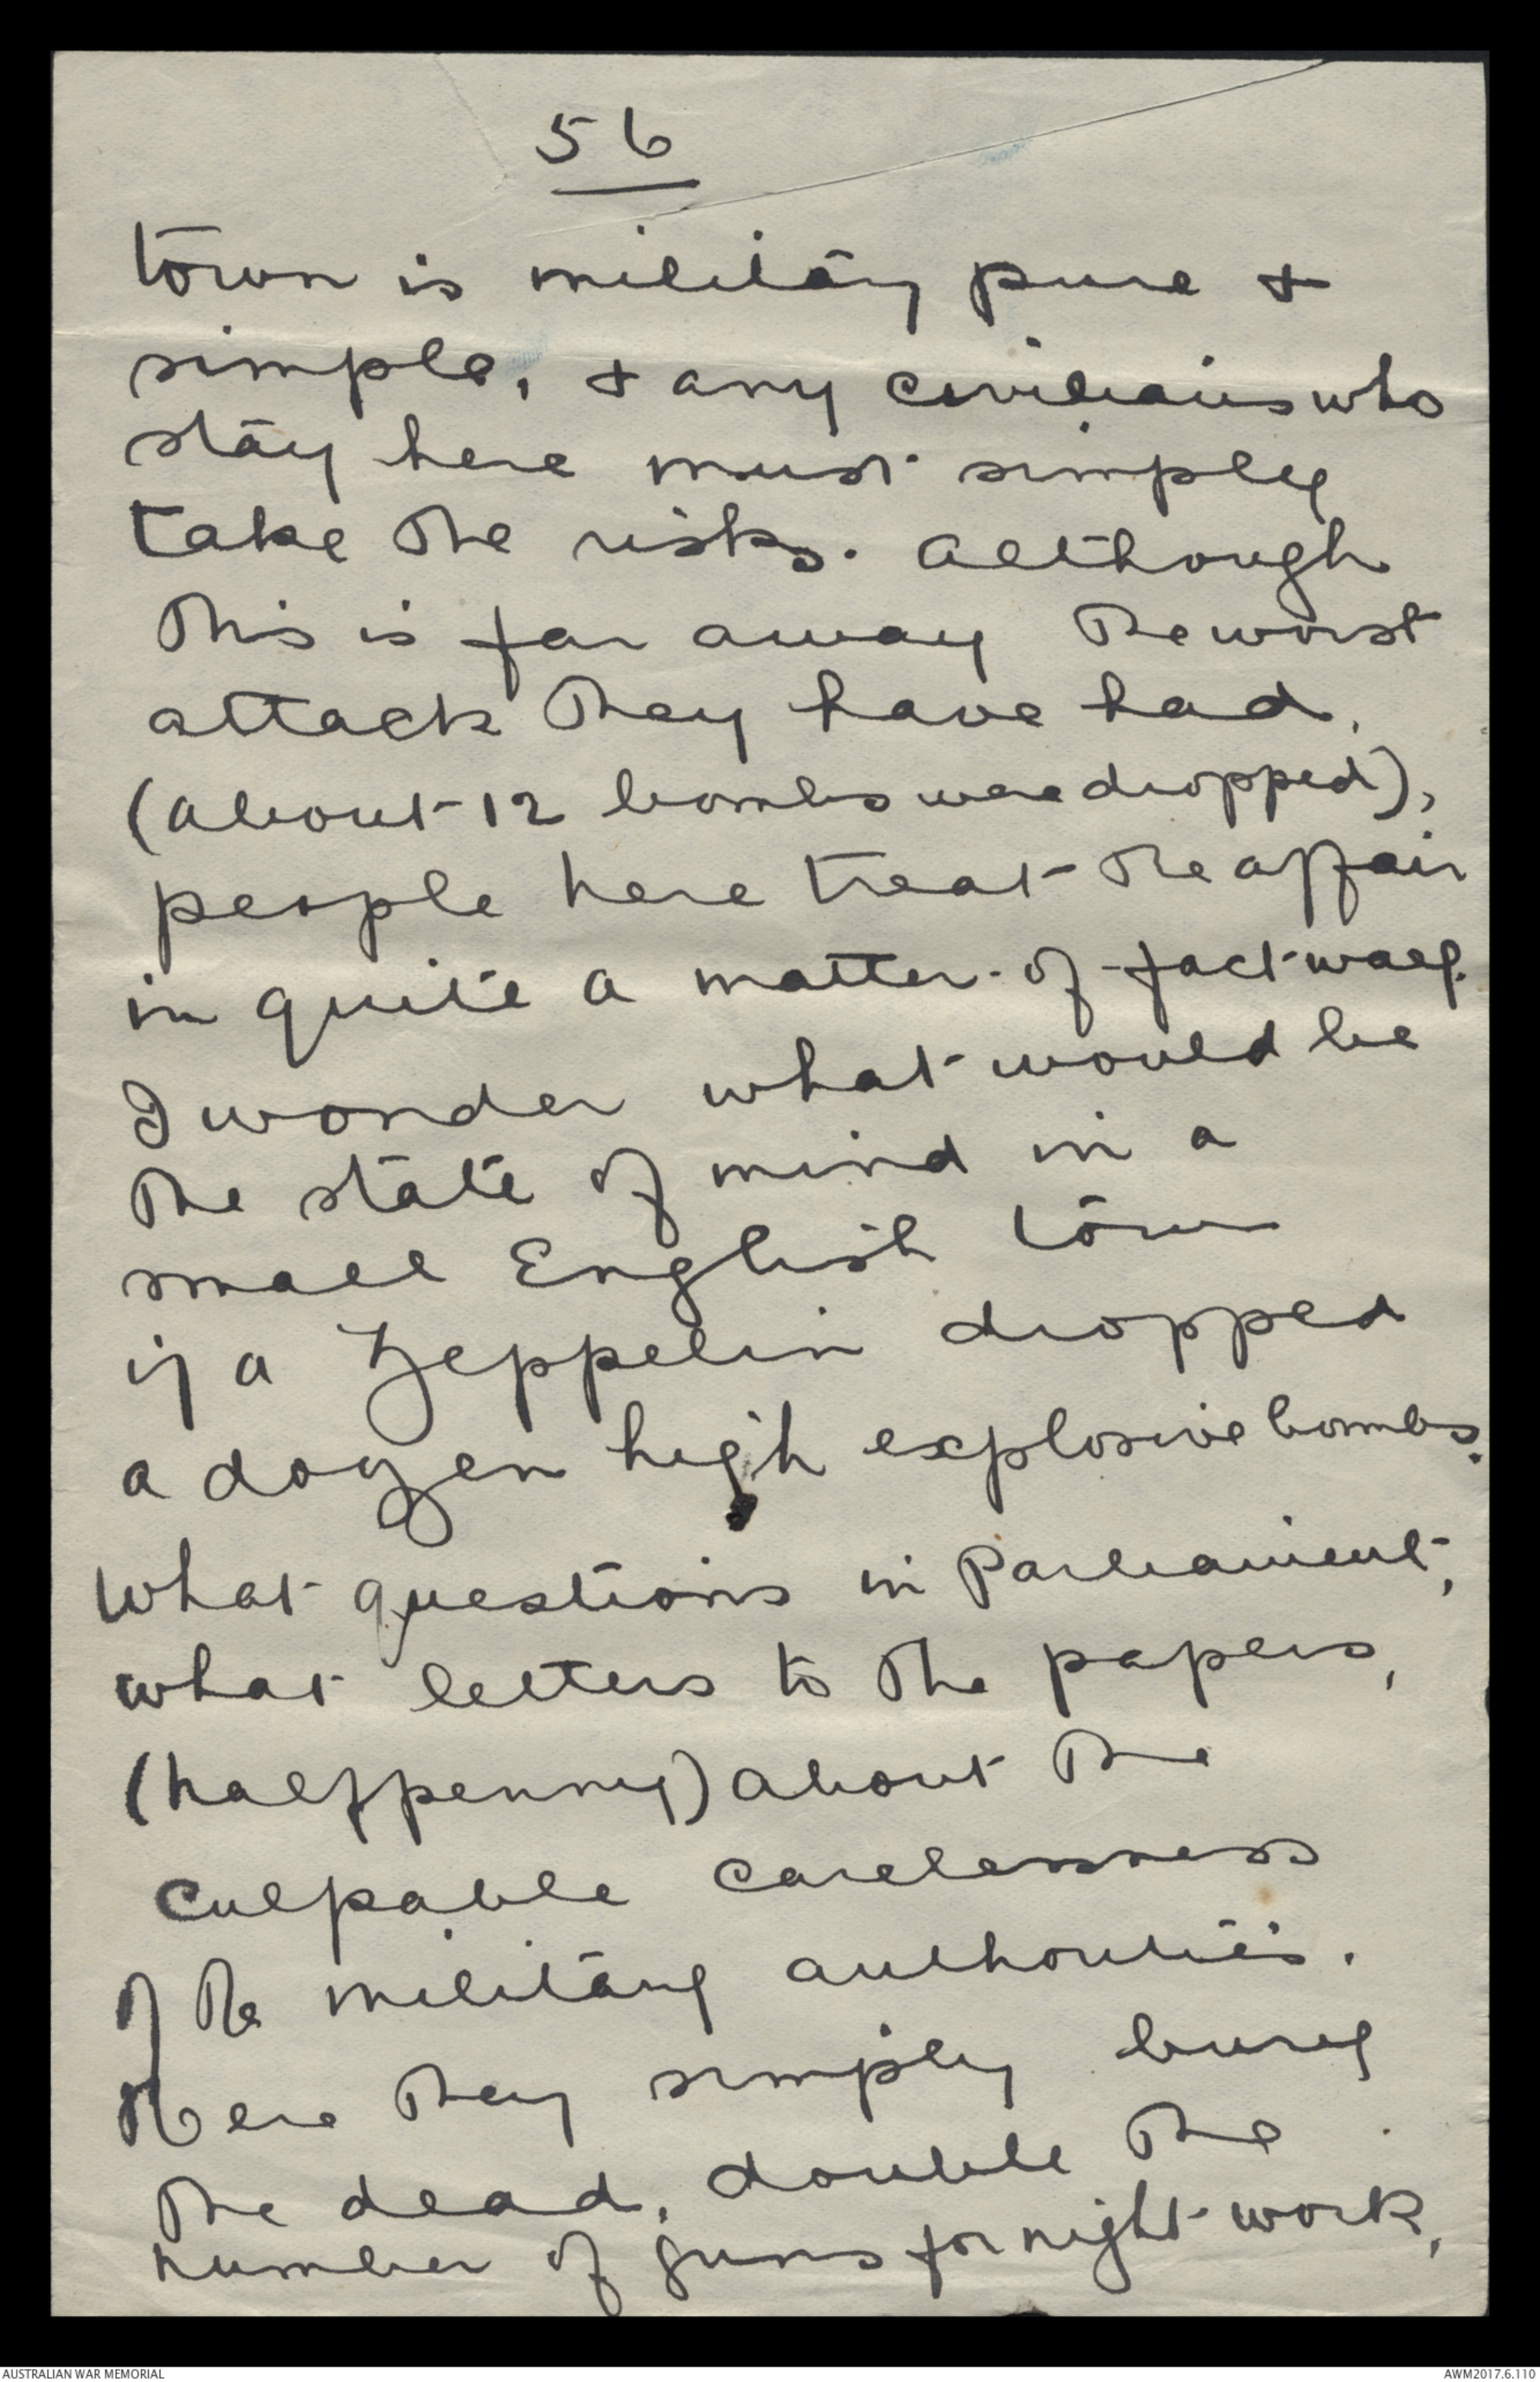 56
town is military pure &
simple, & any civilians who
stay here must simply
take the risks. Although
this is far away the worst
attack they have had,
(about 12 bombs were dropped),
people here treat the affair
in quite a matter-of-fact way.
I wonder what would be
the state of mind in a
small English town
if a Zeppelin dropped
a dozen high explosive bombs.
What questions in Parliament,
what letters to the papers,
(halfpenny) about the
culpable carelessness
of the military authorities.
Here they simply bury
the dead, double the
number of guns for night work,
AUSTRALIAN WAR MEMORIAL
AWM2017.6.110